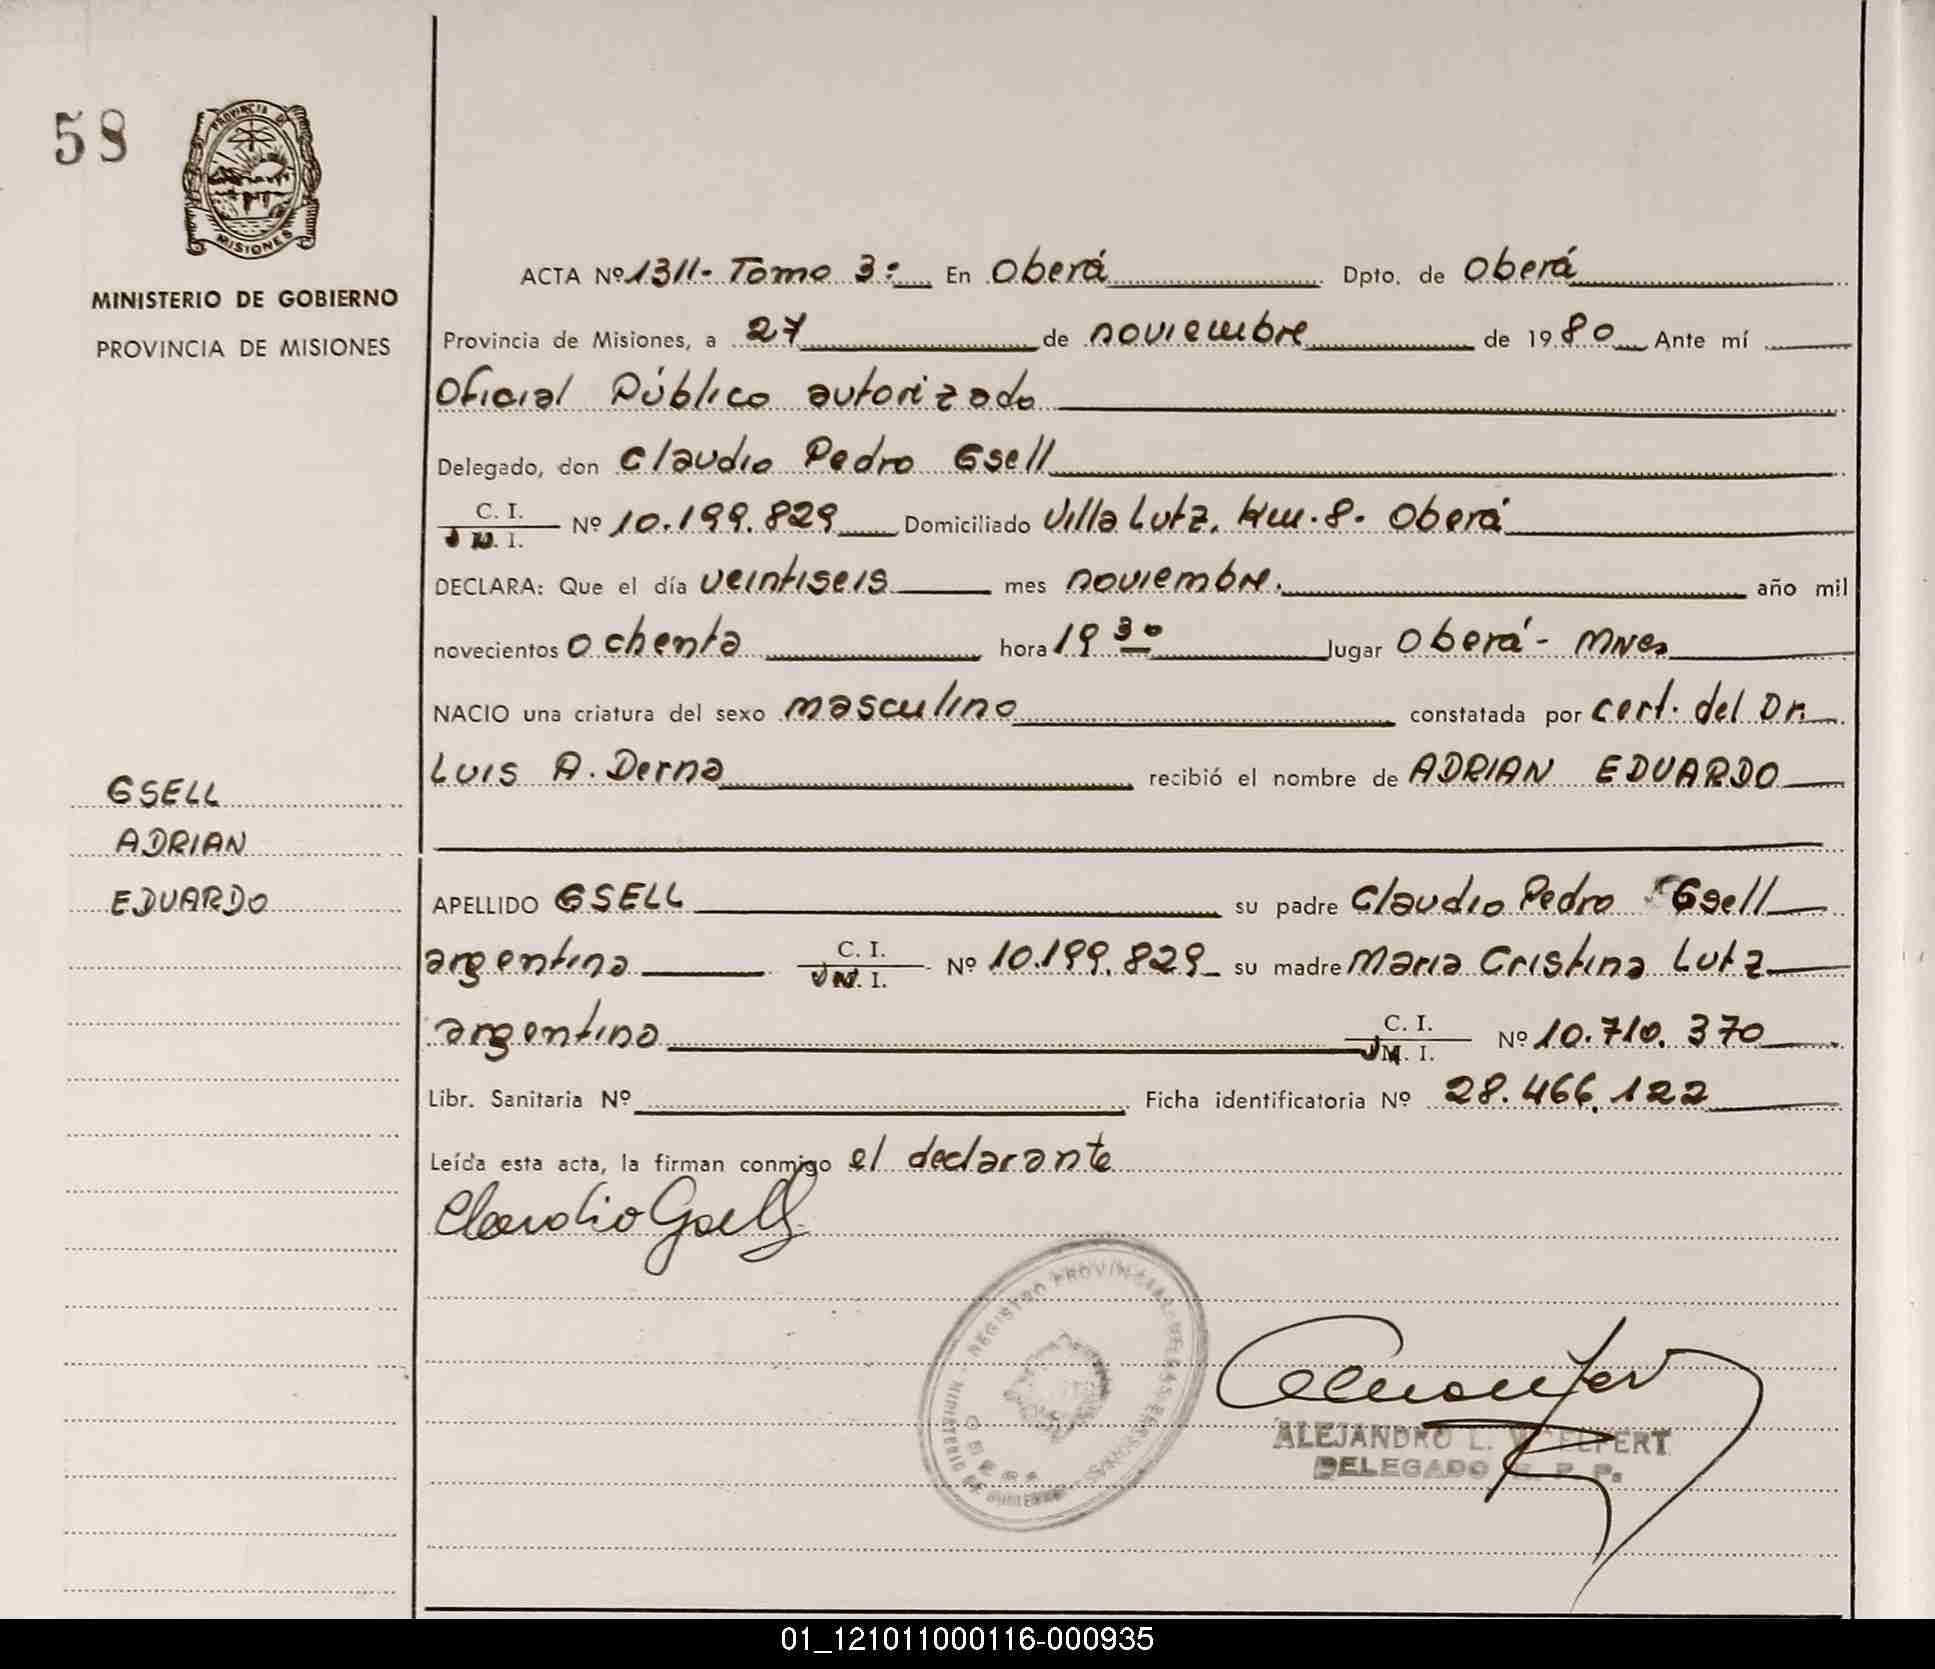 58
PROVINCIA DE
MISIONES
MINISTERIO DE GOBIERNO
PROVINCIA DE MISIONES
ACTA Nº 1311- Tomo 3º En Oberá Dpto. de Oberá
Provincia de Misiones, a 27 de noviembre de 1980 Ante mí
Oficial Público autorizado
Delegado, don Claudio Pedro Gsell
C. I.
M. I. Nº 10.199.829 Domiciliado Villa Lutz, Km. 8. Oberá
DECLARA: Que el día veintiseis mes noviembre. año mil
novecientos ochenta hora 19 30 Jugar Oberá - Mnes
NACIO una criatura del sexo masculino constatada por cert. del Dr.
Luis A. Derna recibió el nombre de ADRIAN EDUARDO
GSELL
ADRIAN
EDUARDO
APELLIDO GSELL su padre Claudio Pedro Gsell
argentina C. I.
M. I. Nº 10.199.829 su madre Maria Cristina Lutz
argentina C. I.
M. I. Nº 10.710.370
Libr. Sanitaria Nº Ficha identificatoria Nº 28.466.122
Leída esta acta, la firman conmigo el declarante
Claudio Gsell
REGISTRO PROVINCIAL DE LAS PERSONAS
MINISTERIO DE GOBIERNO
OBERA
ALEJANDRO L. WOELFERT
DELEGADO R. P. P.
01_121011000116-000935